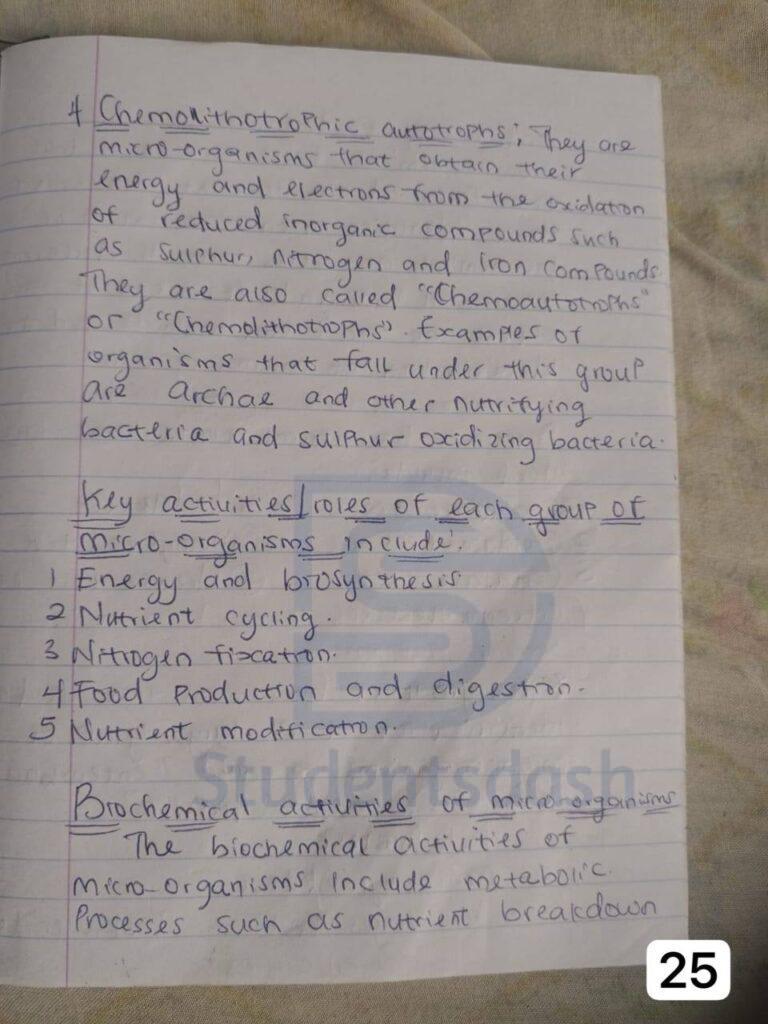 4 Chemolithotrophic autotrophs; They are
micro-organisms that obtain their
energy and electrons from the oxidation
of reduced inorganic compounds such
as sulphur, nitrogen and iron compounds
They are also called "Chemoautotrophs"
or "Chemolithotrophs". Examples of
organisms that fall under this group
are archae and other nutrifying
bacteria and sulphur oxidizing bacteria.
Key activities/roles of each group of
micro-organisms include.
1 Energy and biosynthesis
2 Nutrient cycling.
3 Nitrogen fixation.
4 Food production and digestion.
5 Nutrient modification.
Studentsdash
Biochemical activities of micro-organisms
The biochemical activities of
micro-organisms include metabolic
Processes such as nutrient breakdown
25